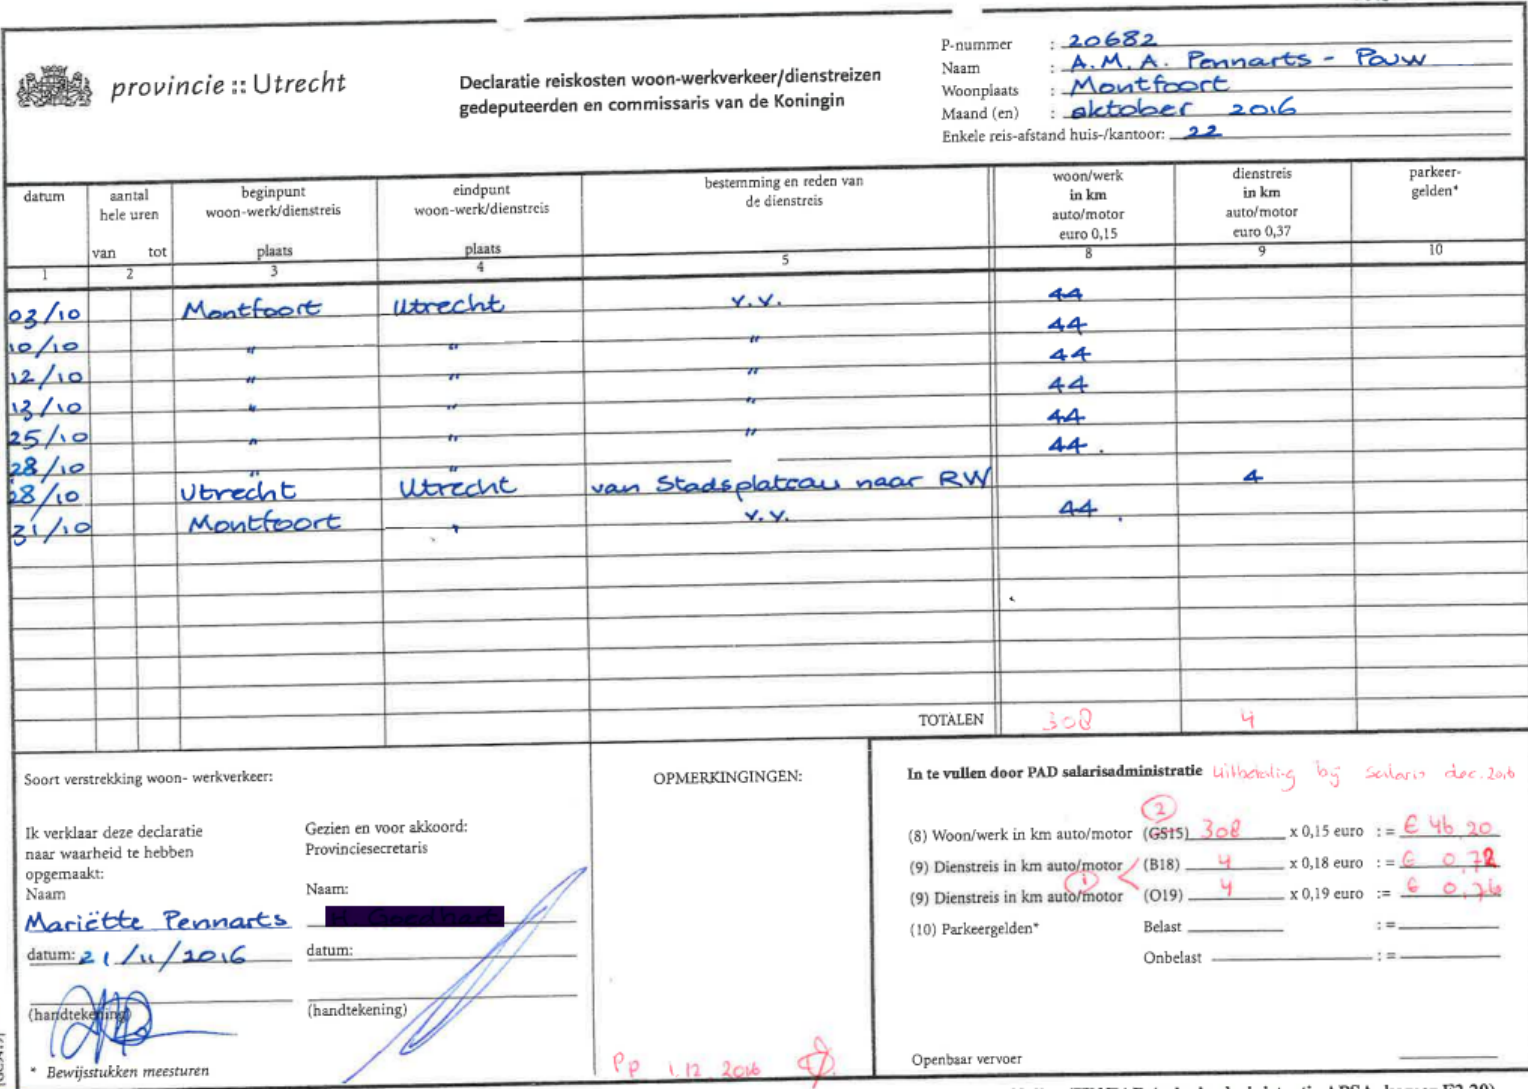 provincie :: Utrecht
Declaratie reiskosten woon-werkverkeer/dienstreizen
gedeputeerden en commissaris van de Koningin
P-nummer : 20682
Naam : A.M.A. Pennarts - Pouw
Woonplaats : Montfoort
Maand (en) : oktober 2016
Enkele reis-afstand huis-/kantoor: 22
datum aantal hele uren van tot beginpunt woon-werk/dienstreis plaats eindpunt woon-werk/dienstreis plaats bestemming en reden van de dienstreis woon/werk in km auto/motor euro 0,15 dienstreis in km auto/motor euro 0,37 parkeer-gelden*
1 2 3 4 5 8 9 10
03/10 Montfoort Utrecht v.v. 44
10/10 " " " 44
12/10 " " " 44
13/10 " " " 44
25/10 " " " 44
28/10 " " 44.
28/10 Utrecht Utrecht van Stadsplateau naar RW 4
31/10 Montfoort " v.v. 44.
TOTALEN 308 4
Soort verstrekking woon- werkverkeer:
Ik verklaar deze declaratie
naar waarheid te hebben
opgemaakt:
Naam
Mariëtte Pennarts
datum: 21/11/2016
(handtekening)
* Bewijsstukken meesturen
Gezien en voor akkoord:
Provinciesecretaris
Naam:
H Goedhart
datum:
(handtekening)
OPMERKINGINGEN:
PP 1.12.2016
In te vullen door PAD salarisadministratie Uitbetaling bij salaris dec. 2016
2
(8) Woon/werk in km auto/motor (GS15) 308 x 0,15 euro := € 46,20
(9) Dienstreis in km auto/motor (B18) 4 x 0,18 euro := € 0,72
1
(9) Dienstreis in km auto/motor (O19) 4 x 0,19 euro := € 0,76
(10) Parkeergelden* Belast :=
Onbelast :=
Openbaar vervoer